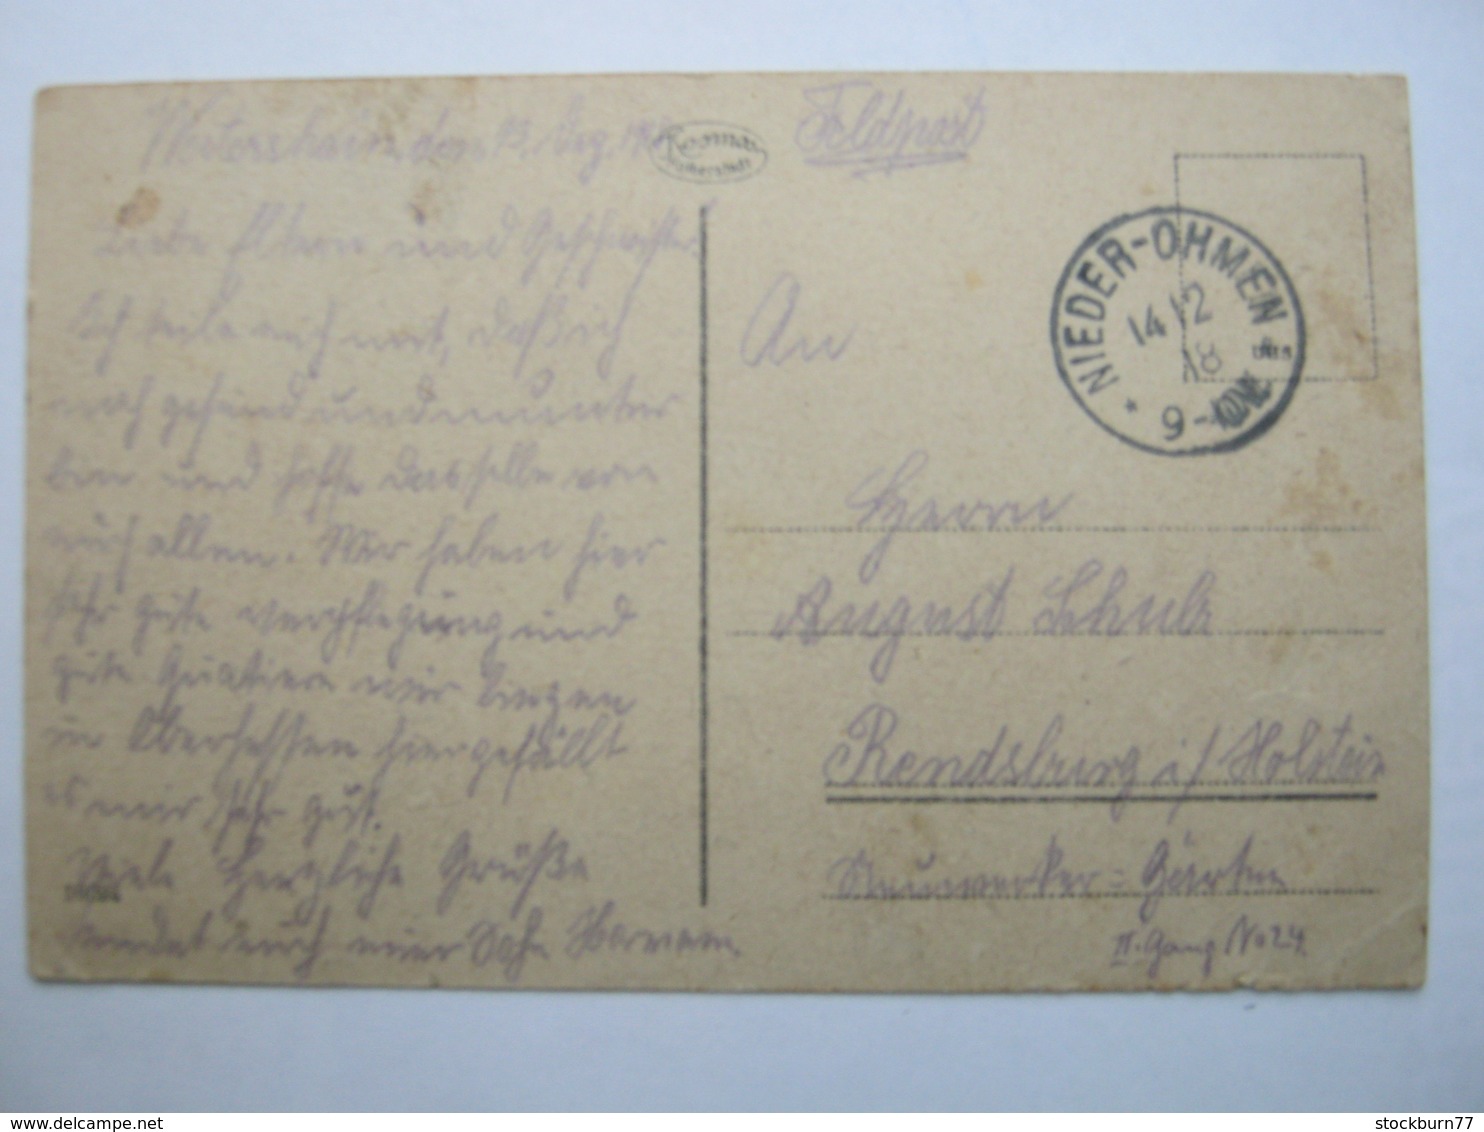 Weitershain, den 13. Dez. 1918
Feldpost
Liebe Eltern und Geschwister!
Ich teile euch mit, daß ich
noch gesund und munter
bin und hoffe dasselbe von
euch allen. Wir haben hier
sehr gute Verpflegung und
gute Quatiere wir liegen
in Oberhessen hier gefällt
es mir sehr gut.
Viele Herzliche Grüße
sendet euch euer Sohn Hermann
NIEDER-OHMEN
14 12
18
9-10
An
Herrn
August Schulz
Rendsburg i/Holstein
Neuwerker=Gärten
II. Gang No 24.
stockburn77